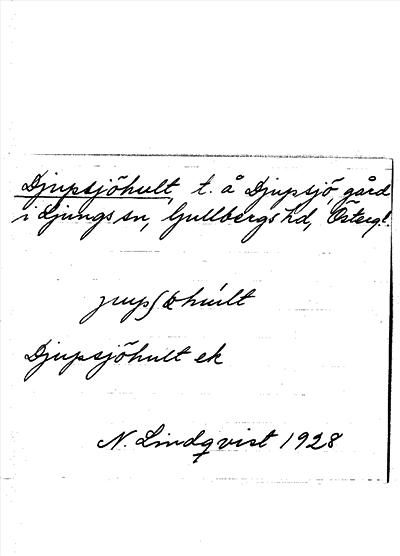 Djupsjöhult, t. å Djupsjö, gård
i Ljungs sn, Gullbergs hd, Österg!
Djupsjöhult ek
N. Lindqvist 1928